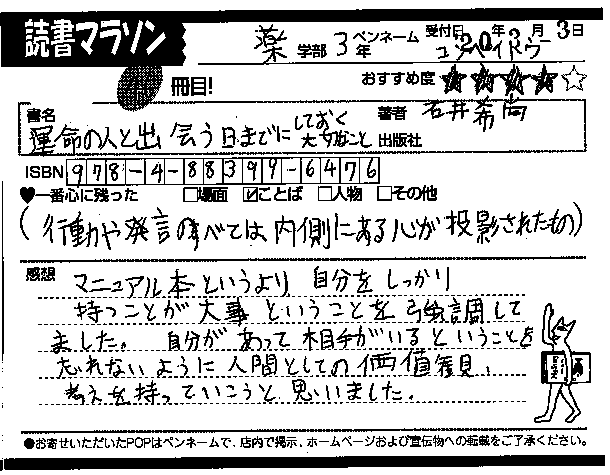 読書マラソン
薬 学部 3年 ペンネーム 受付日 20年3月3日
冊目!
おすすめ度 ★★★★☆
書名 運命の人と出会う日までにしておく大切なこと 著者 石井希尚 出版社
ISBN 978-4-88399-6476
♥一番心に残った □場面 ☑ことば □人物 □その他
(行動や発言のすべては内側にある心が投影されたもの)
感想 マニュアル本というより 自分をしっかり
持つことが大事ということを強調して
ました。 自分があって相手がいるということを
忘れないように人間としての価値観、
考えを持っていこうと思いました。
●お寄せいただいたPOPはペンネームで、店内で掲示、ホームページおよび宣伝物への転載をご了承ください。